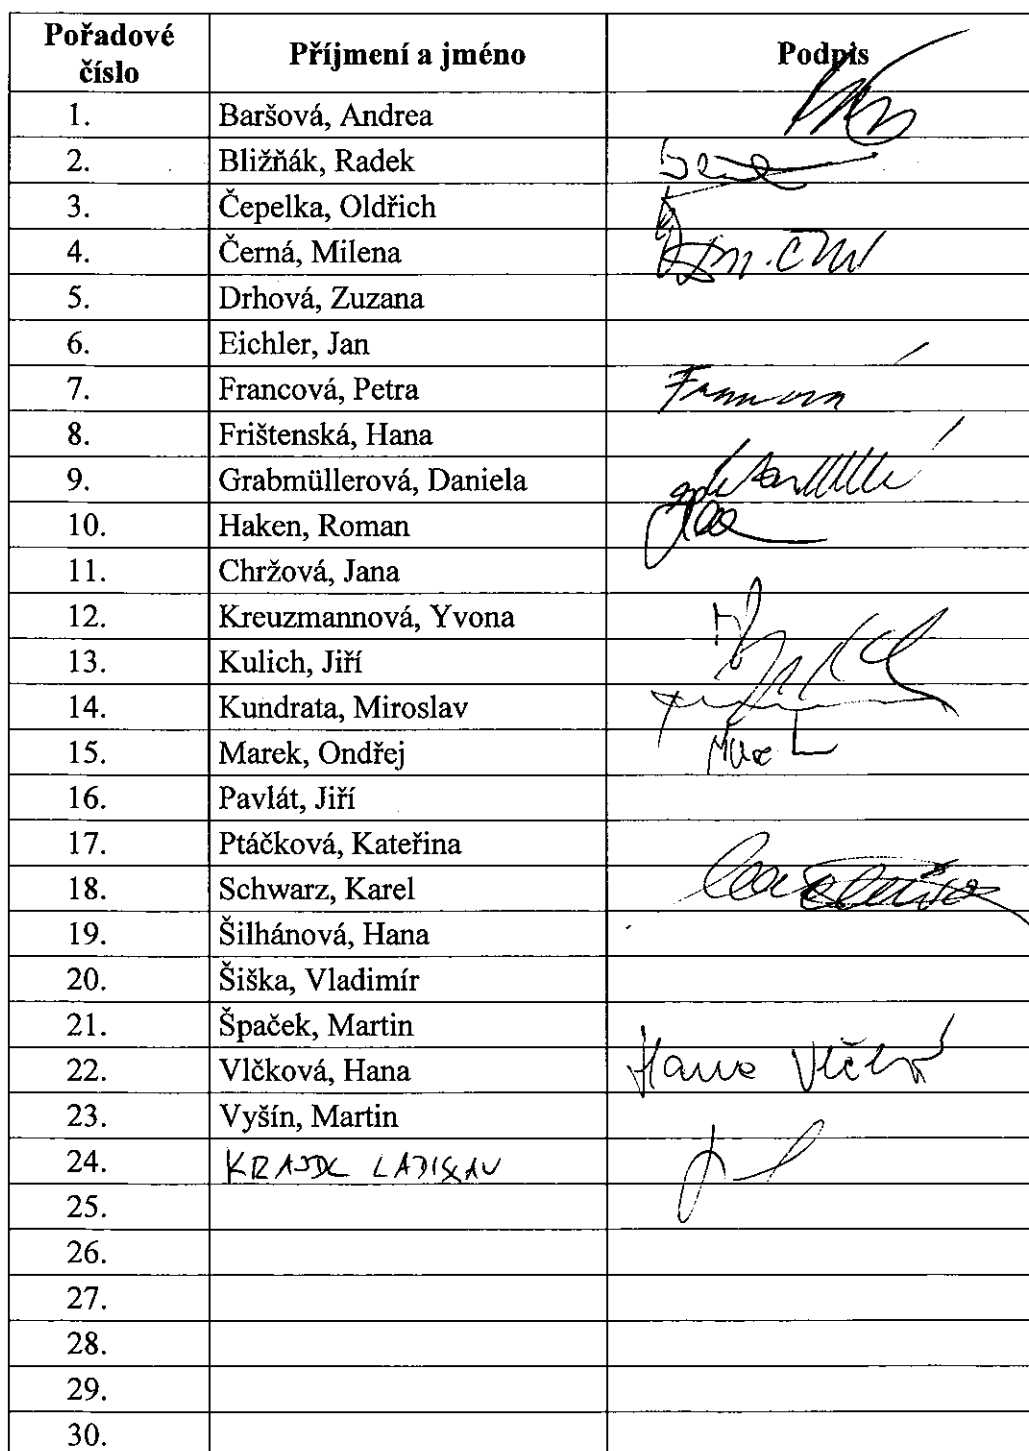 Pořadové číslo Příjmení a jméno Podpis
1. Baršová, Andrea
2. Bližňák, Radek
3. Čepelka, Oldřich
4. Černá, Milena
5. Drhová, Zuzana
6. Eichler, Jan
7. Francová, Petra Francová
8. Frištenská, Hana
9. Grabmüllerová, Daniela
10. Haken, Roman
11. Chržová, Jana
12. Kreuzmannová, Yvona
13. Kulich, Jiří
14. Kundrata, Miroslav
15. Marek, Ondřej
16. Pavlát, Jiří
17. Ptáčková, Kateřina
18. Schwarz, Karel
19. Šilhánová, Hana
20. Šiška, Vladimír
21. Špaček, Martin
22. Vlčková, Hana Hana Vlčková
23. Vyšín, Martin
24. LADISLAV
25.
26.
27.
28.
29.
30.